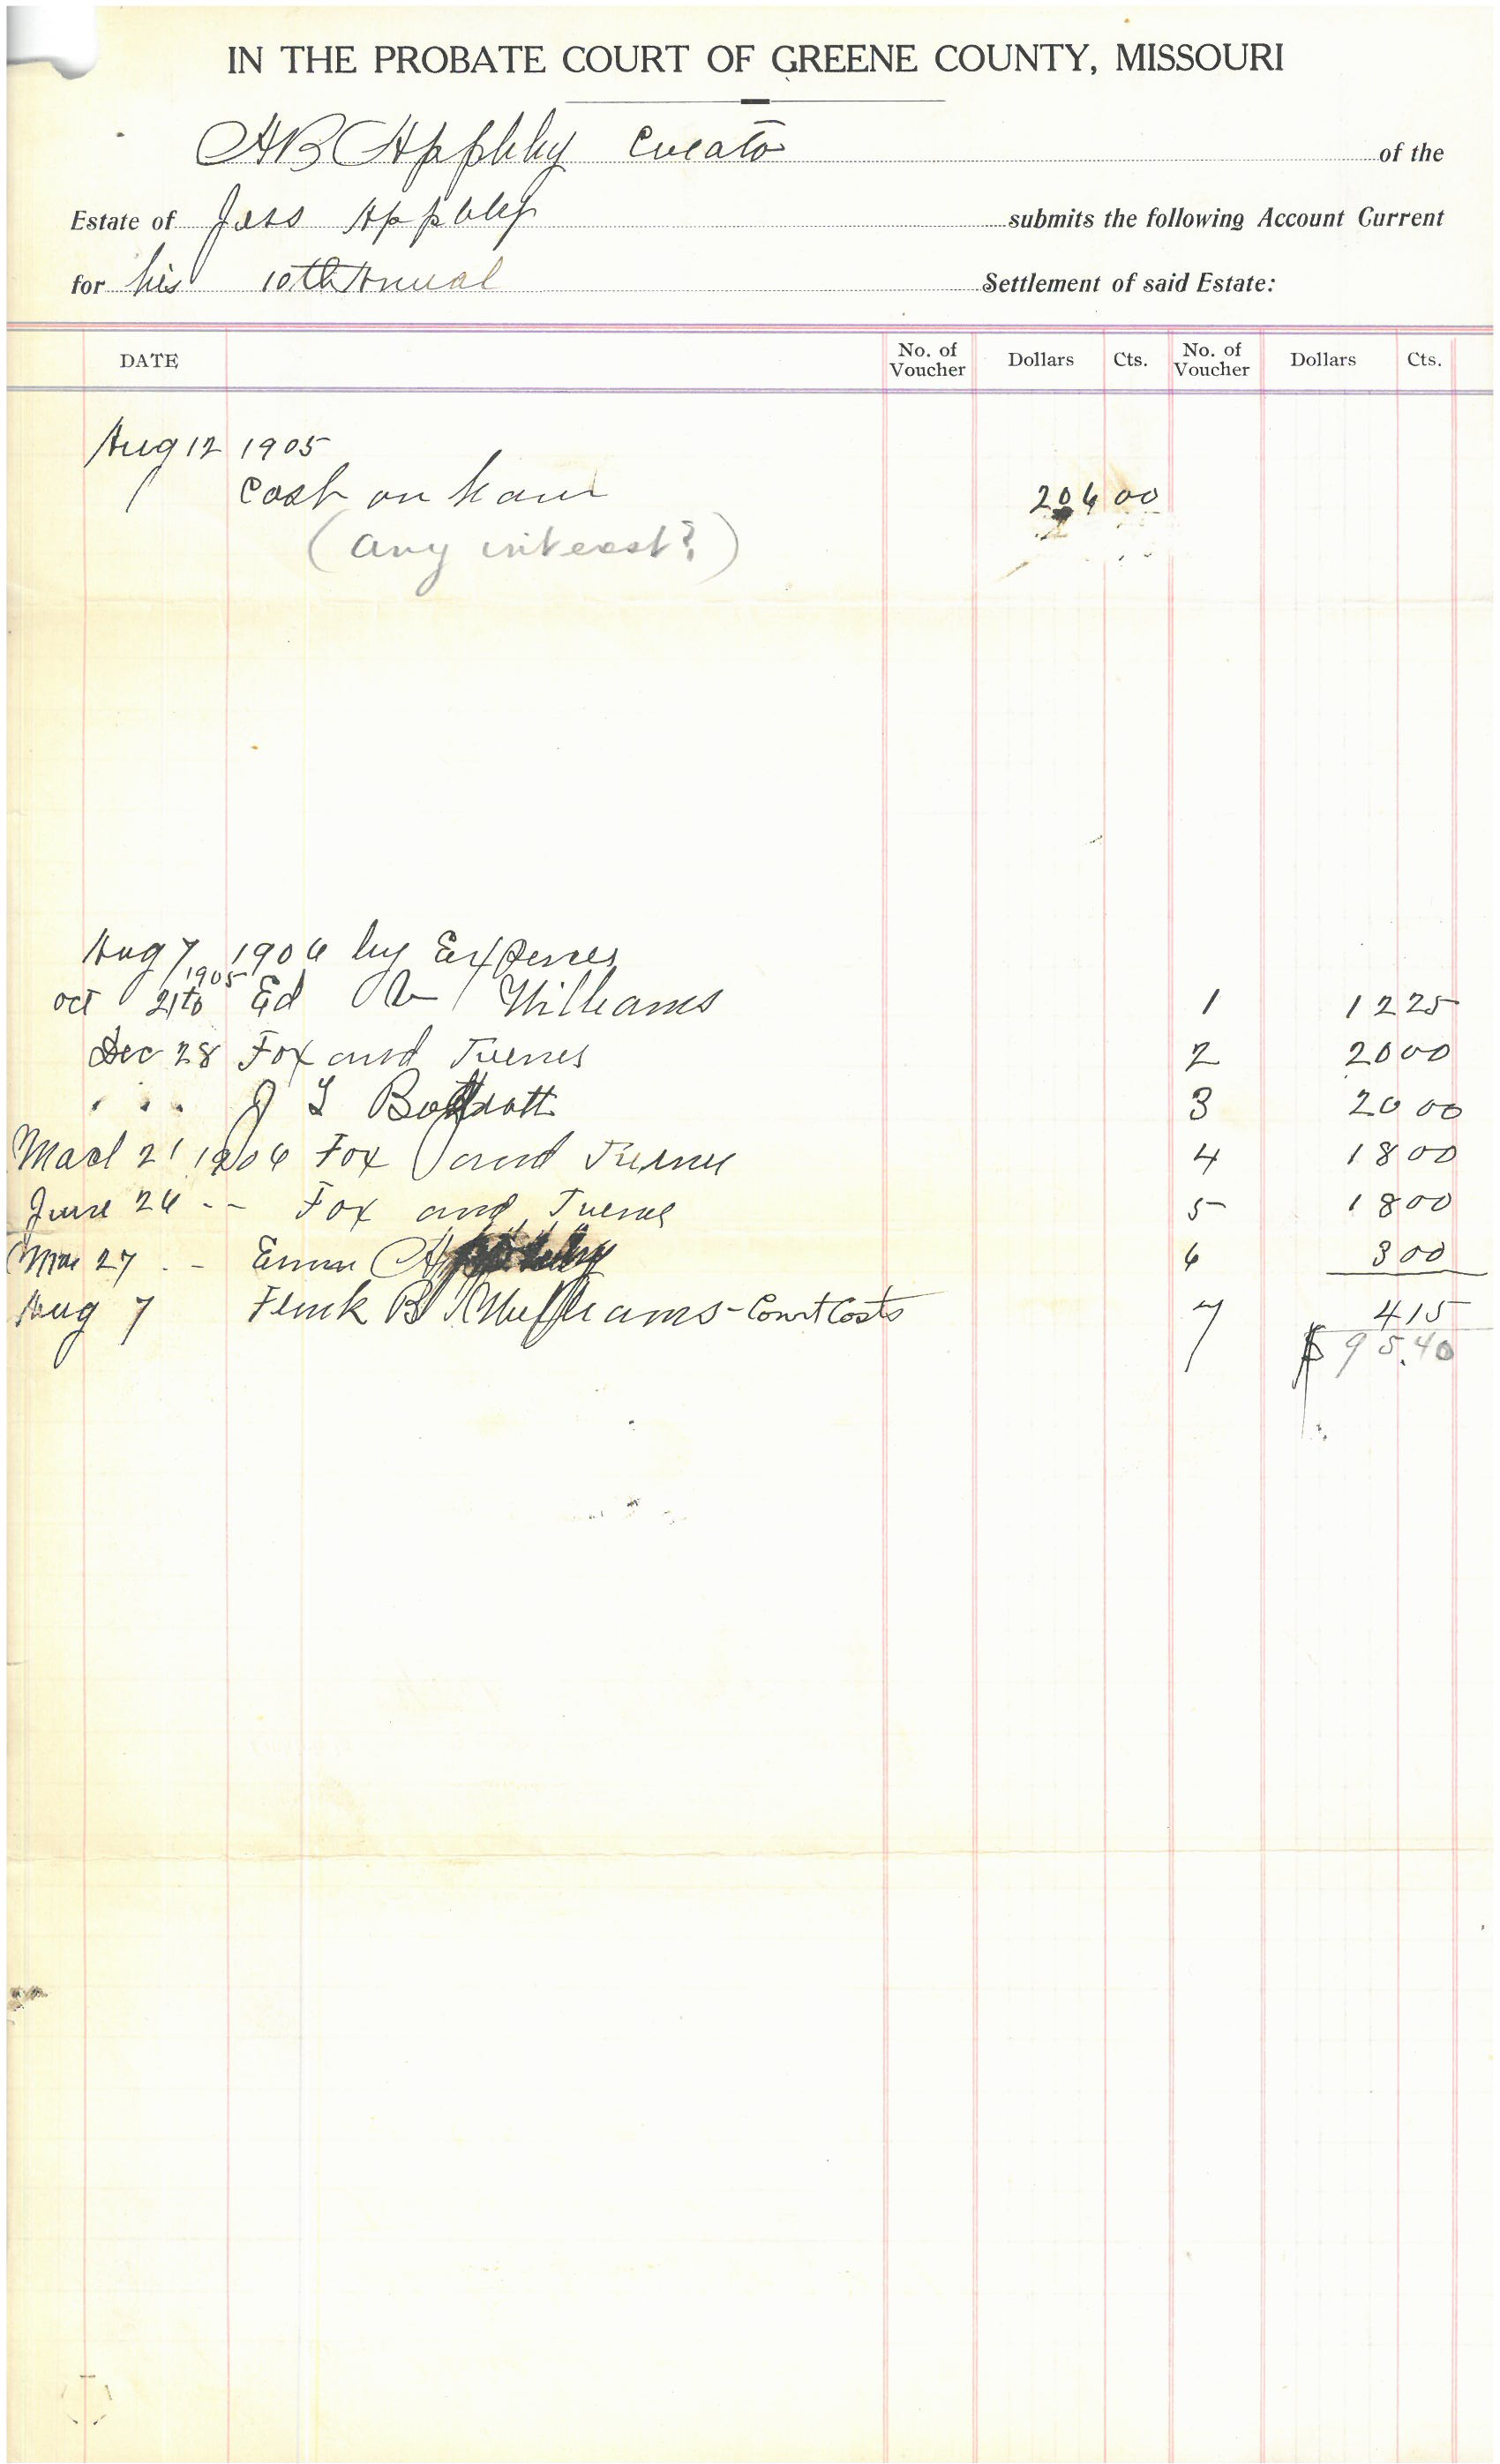 IN THE PROBATE COURT OF GREENE COUNTY, MISSOURI
A B Appleby Curator of the
Estate of Jess Appbley submits the following Account Current
for his 10th Anual Settlement of said Estate:
DATE No. of Voucher Dollars Cts. No. of Voucher Dollars Cts.
Aug 12 1905
Cash on han 206 00
(any interest?)
Aug 7 1906 by Expences
1905
oct 21 to Ed Williams 1 12 25
Dec 28 Fox and Turner 2 20 00
" " J L 3 20 00
Mach 21 1906 Fox and Turner 4 18 00
June 26 - - Fox and Turner 5 18 00
Mar 27 - - Appleby 6 3 00
Aug 7 B Williams - Court Costs 7 4 15
$ 95.40